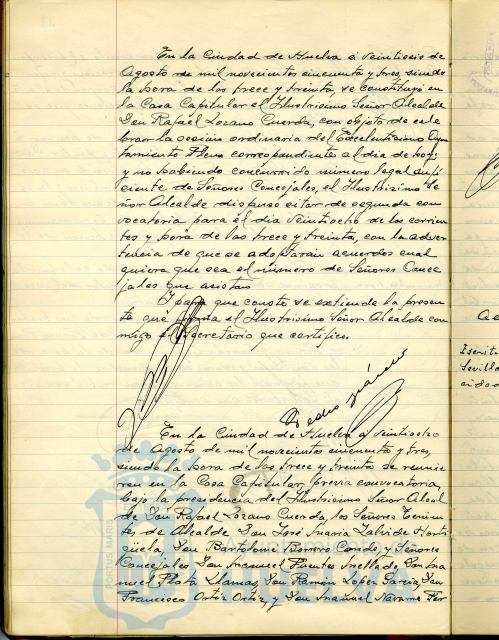 En la Ciudad de Huelva a veintiseis de
Agosto de mil novecientos cincuenta y tres, siendo
la hora de las trece y treinta, se constituyó en
la Casa Capitular el Ilustrísimo Señor Alcalde
Don Rafael Lozano Cuerda, con objeto de cele
brar la sesión ordinaria del Excelentísimo Ayun
tamiento Pleno correspondiente al día de hoy;
y no habiendo concurrido número legal sufi
ciente de Señores Concejales, el Ilustrísimo Se
ñor Alcalde dispuso citar de segunda con
vocatoria para el día veintiocho de los corrien
tes y hora de las trece y treinta, con la adver
tencia de que se adoptarán acuerdos cual
quiera que sea el número de Señores Conce
jales que asistan
Y para que conste se extiende la presen
te que firma el Ilustrísimo Señor Alcalde con
migo el Secretario que certifico.
Pedro
En la Ciudad de Huelva a veintiocho
de Agosto de mil novecientos cincuenta y tres,
siendo la hora de las trece y treinta se reunie
ron en la Casa Capitular, previa convocatoria,
bajo la presidencia del Ilustrísimo Señor Alcal
de Don Rafael Lozano Cuerda, los Señores Tenien
tes de Alcalde Don José María
Don Bartolomé Borrero Conde, y Señores
Concejales Don Manuel Fuentes Don Ma
nuel Plata Llamas, Don Ramón López García, Don
Francisco Ortiz Ortiz, y Don Manuel Navarro Fer
PORTUS MARIS
Sevilla